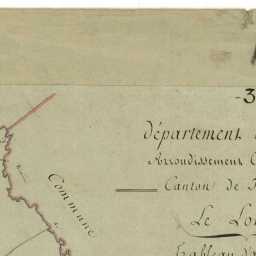 -3
Département
Arrondissement
Canton de
Le
Tableau d'a
Commune